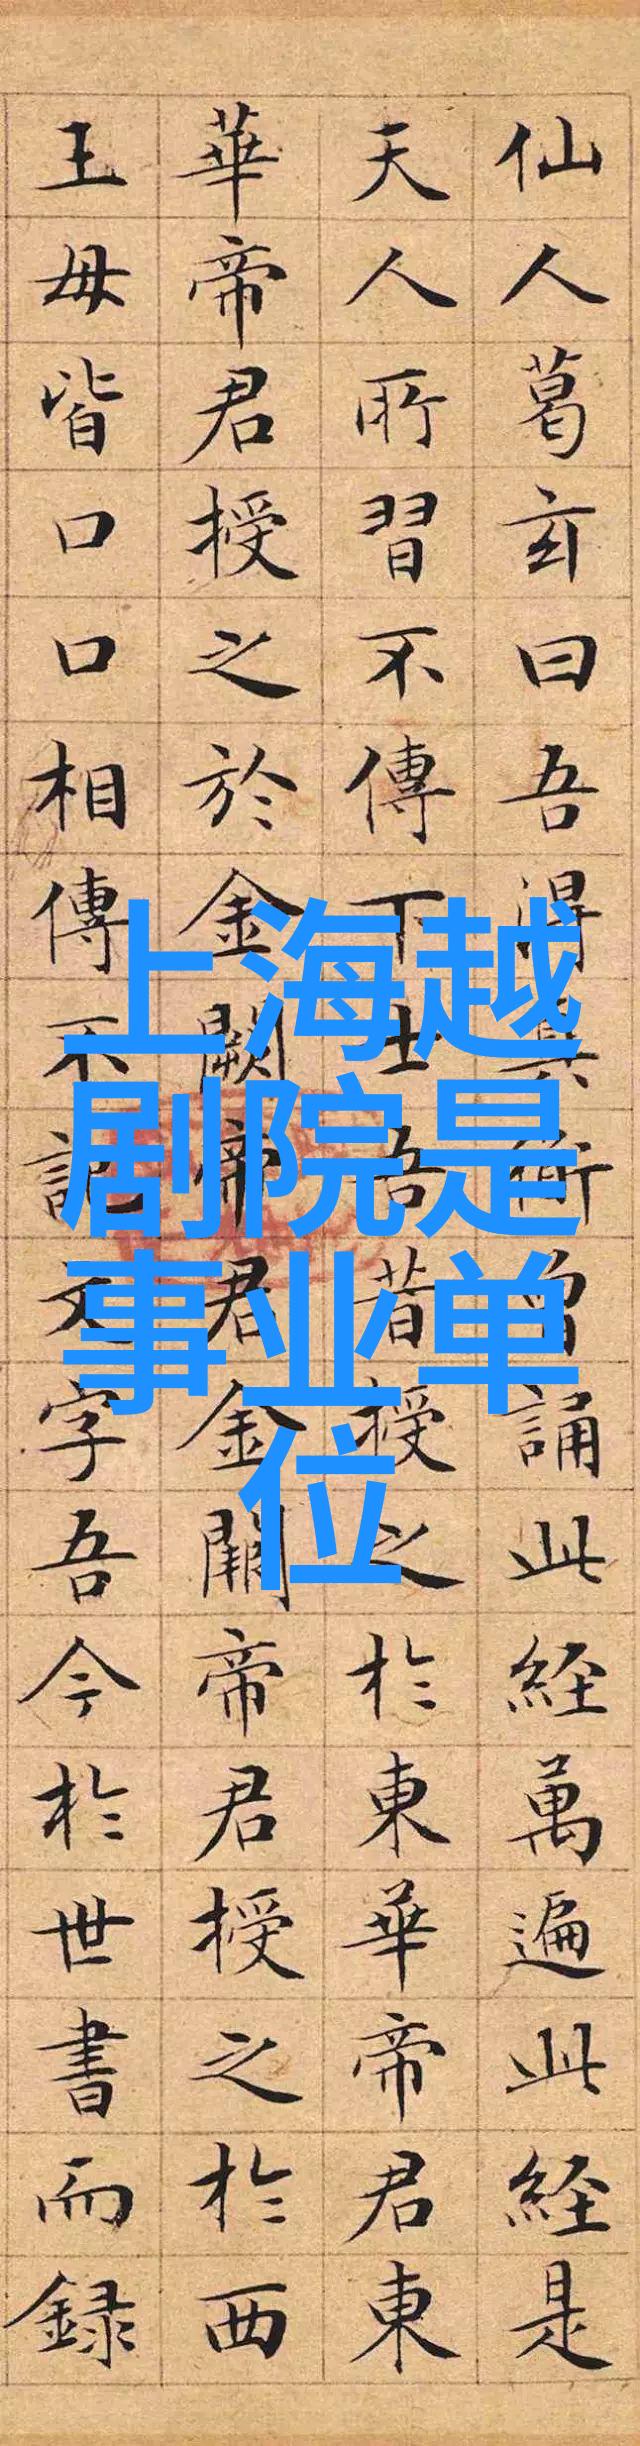 仙人葛玄曰吾得真術曾誦此経萬遍此経是
天人所習不傳下士吾昔授之於東華帝君東
華帝君授之於金闕帝君金闕帝君授之於西
王母皆口口相傳不記文字吾今於世書而録
上海越
剧院是
事业单
位